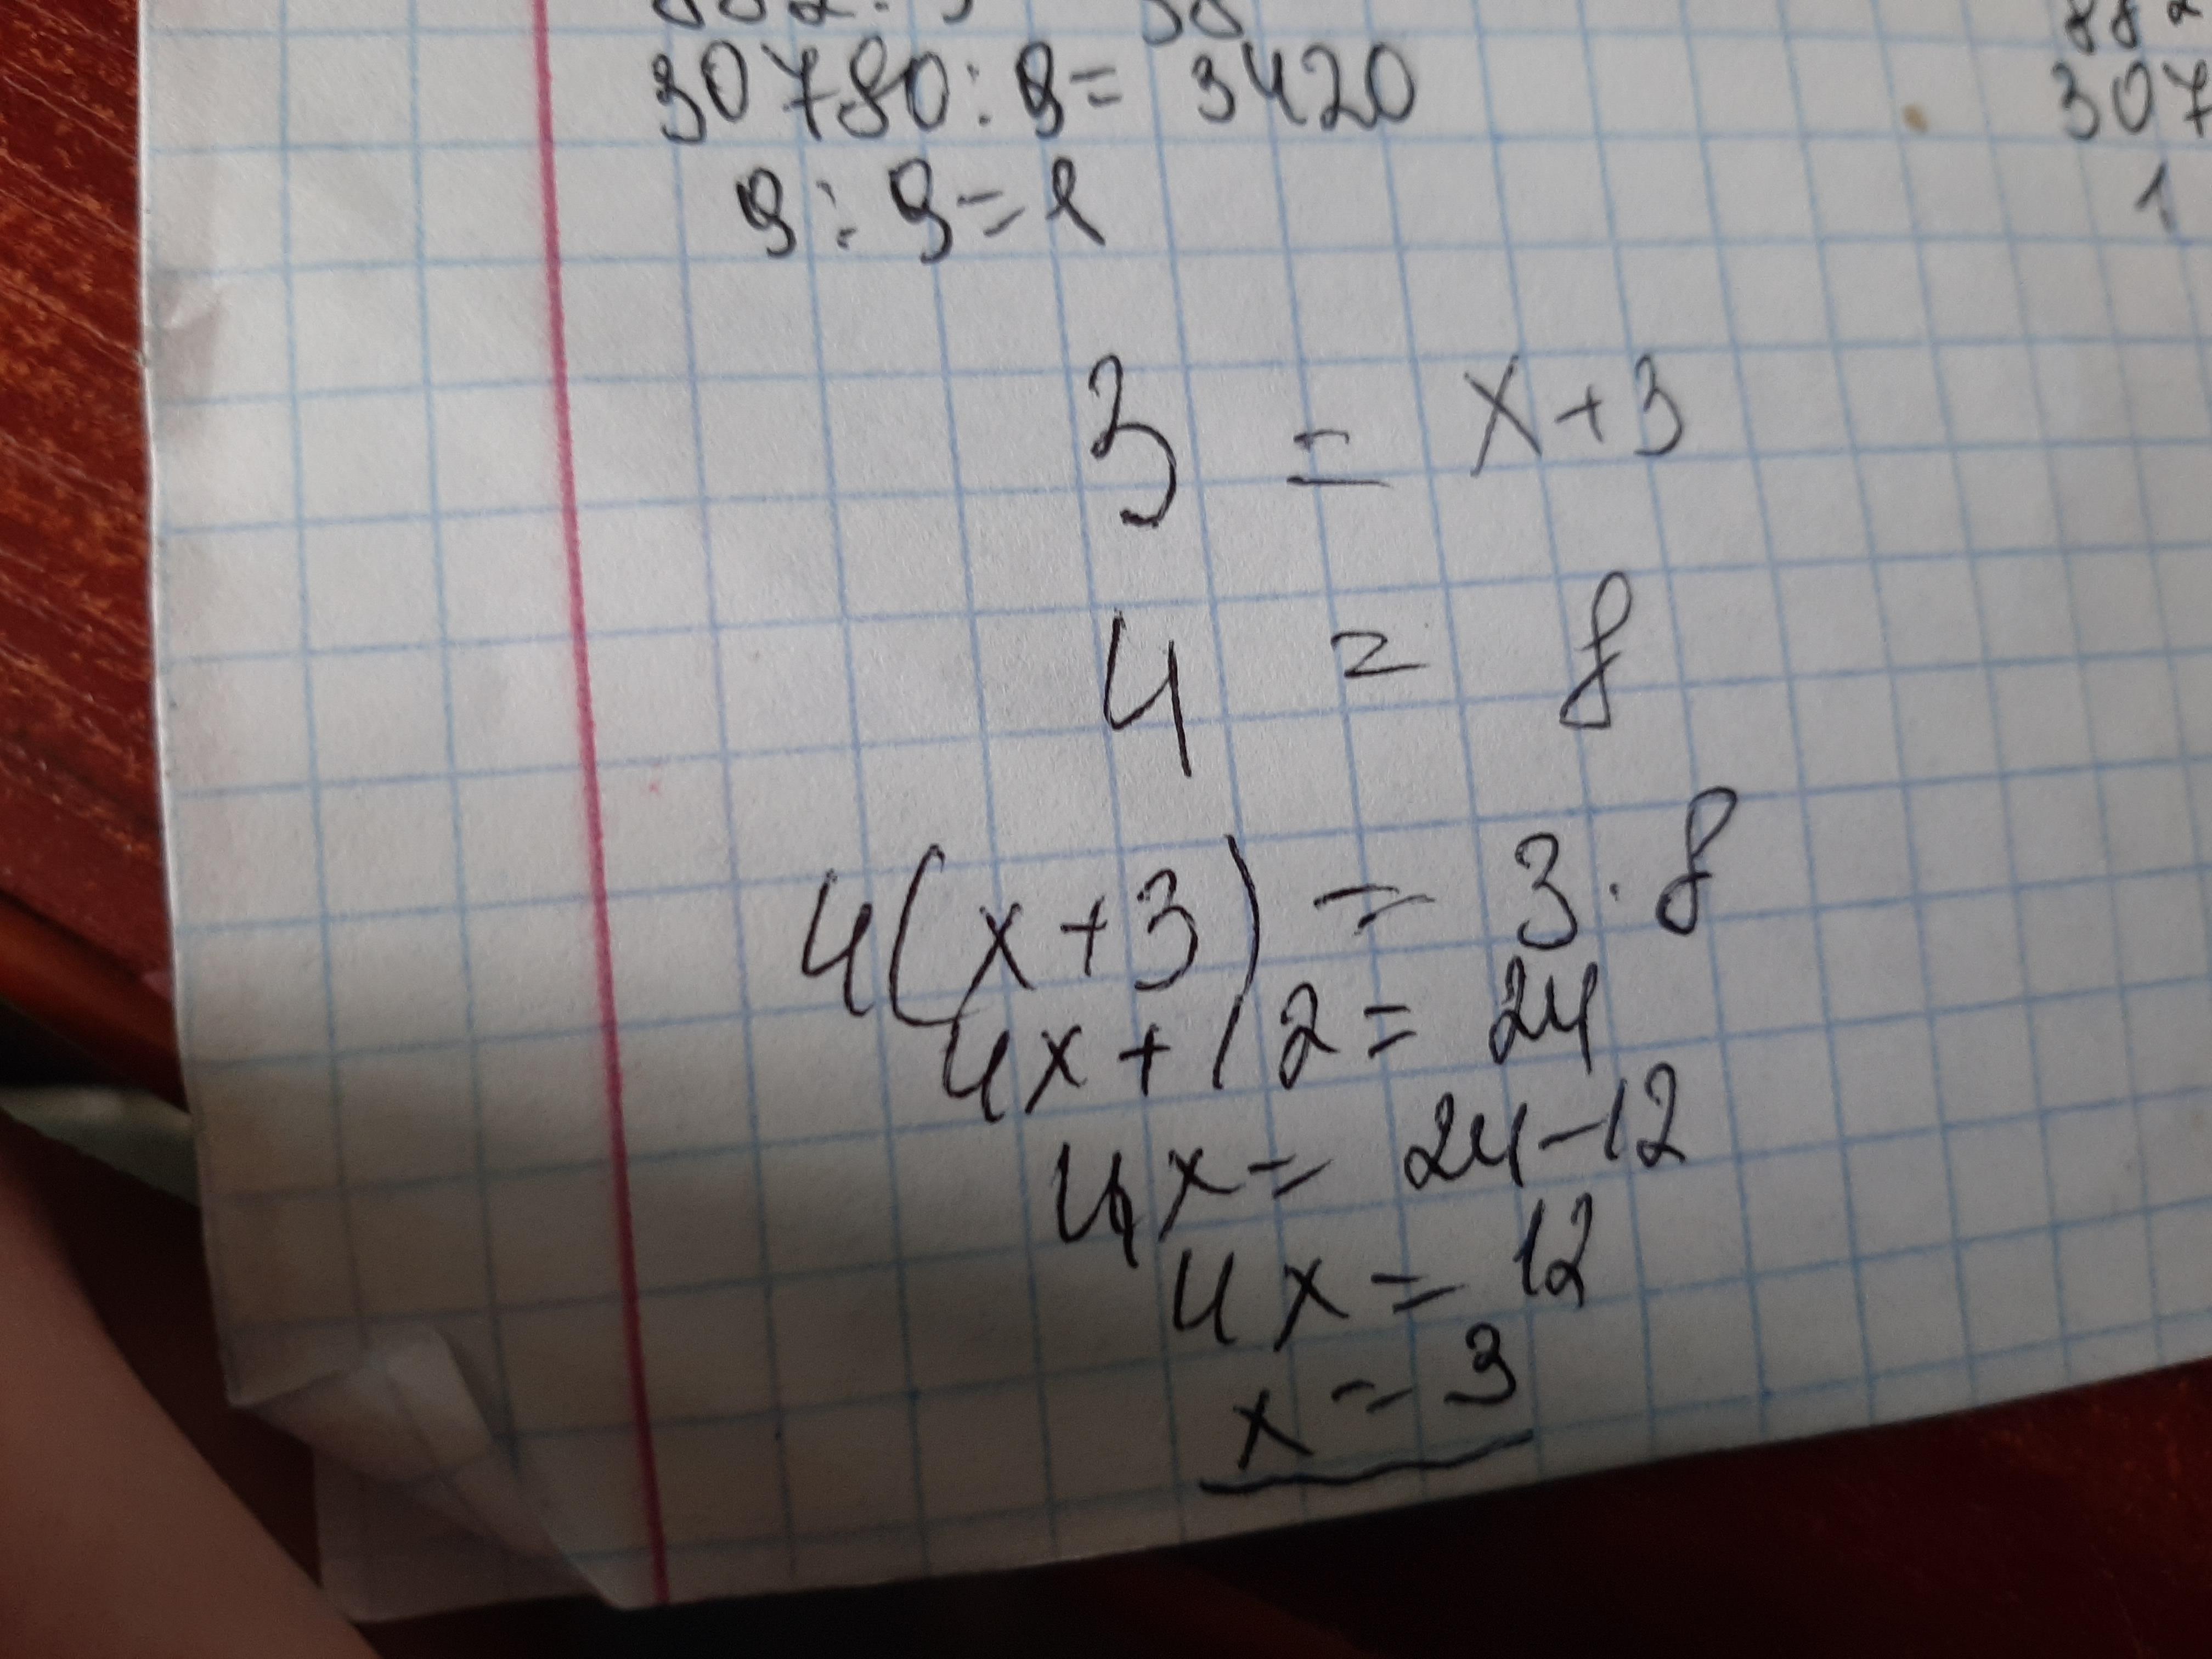 30780:9= 3420 307
9:9=1 1
3 = x+3
4 = 8
4(x+3) = 3·8
4x+12=24
4x=24-12
4x=12
x=3